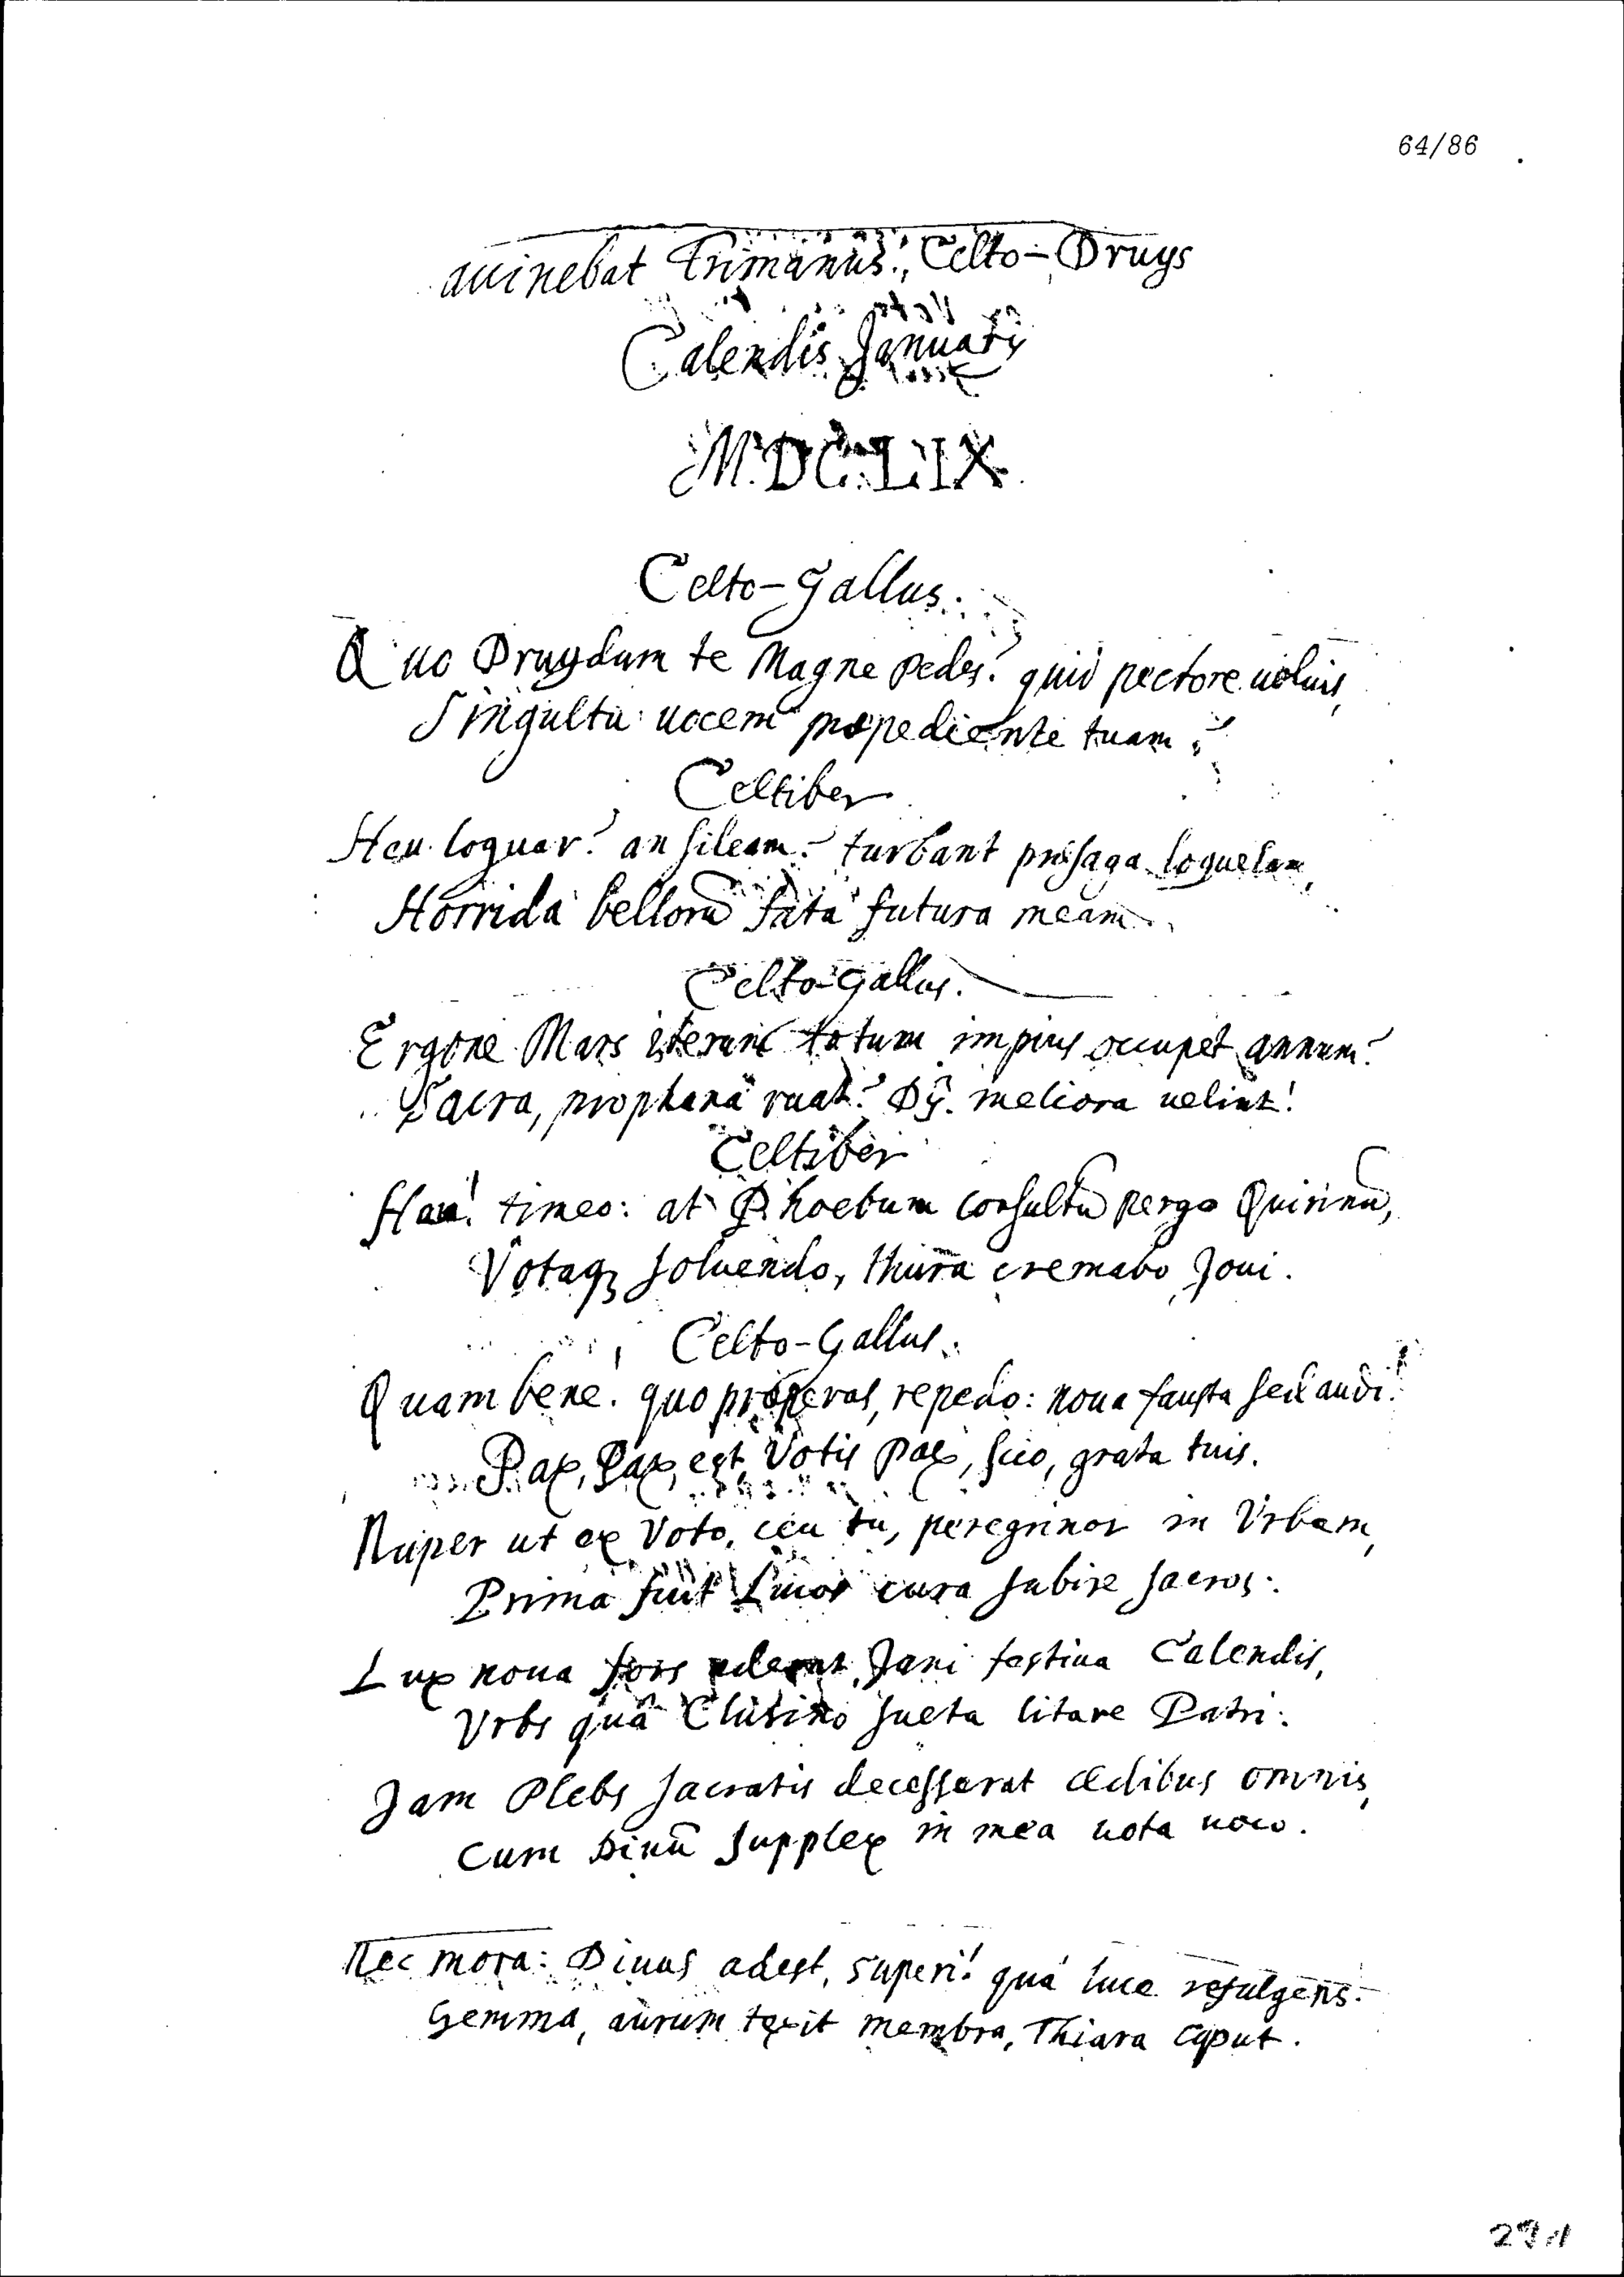 64/86
auinebat Trimanus, Celto-Druys
Calendis Januarij
M.DC.LIX.
Celto-Gallus.
Quo Druydum te Magne pedes? quid pectore uoluis,
Singultu uocem præpediente tuam?
Celtiber
Heu loquar? an sileam? turbant præsaga loquelam,
Horrida bellorũ fata futura meam.
Celto-Gallus.
Ergone Mars iterum totum impius occupet annum?
Sacra, prophana ruat? Dij meliora uelint!
Celtiber
Hau! timeo: at Phoebum consultũ pergo Quirinũ,
Votaq; soluendo, thura cremabo Joui.
Celto-Gallus.
Quam bene! quo properas, repedo: noua fausta sed audi!
Pax, Pax est Votis pax, scio, grata tuis.
Nuper ut ex Voto, ceu tu, peregrinor in Vrbem,
Prima fuit Lucos cura subire sacros:
Lux noua fors aderat, Jani festiua Calendis,
Vrbs quâ Clusino sueta litare Patri:
Jam Plebs sacratis decesserat ædibus omnis,
Cum Diuũ supplex in mea uota uoco.
Nec mora: Diuus adest, superi! quâ luce refulgens!
Gemma, aurum texit membra, Thiara caput.